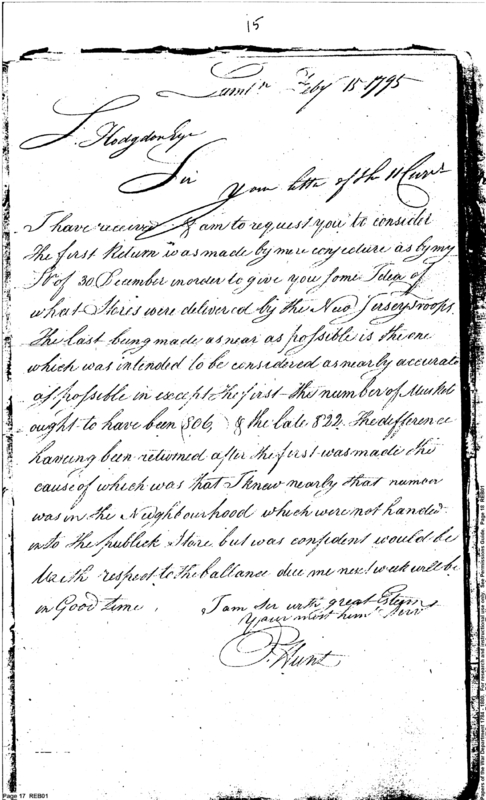 15
Lamtn Feby 15 1795
S. Hodgdon Esqr
Sir
Your letter of the 11 Currt
I have received & am to request you to consider
the first Return was made by mere conjecture as by my
Lr of 30 December in order to give you some Idea of
what Stores were delivered by the New Jersey Troops.
The last being made as near as possible is the one
which was intended to be considered as nearly accurate
as possible in except the first the number of Muskets
ought to have been 806, & the late 822. The difference
haveing been returned after the first was made the
cause of which was that I knew nearly that number
was in the Neighbourhood which were not handed
into the publick Store but was confident would be
With respect to the ballance due me next week will be
in Good time. I am Sir with great Esteem
Your most humb Servt
P. Hunt
Page 17 REB01